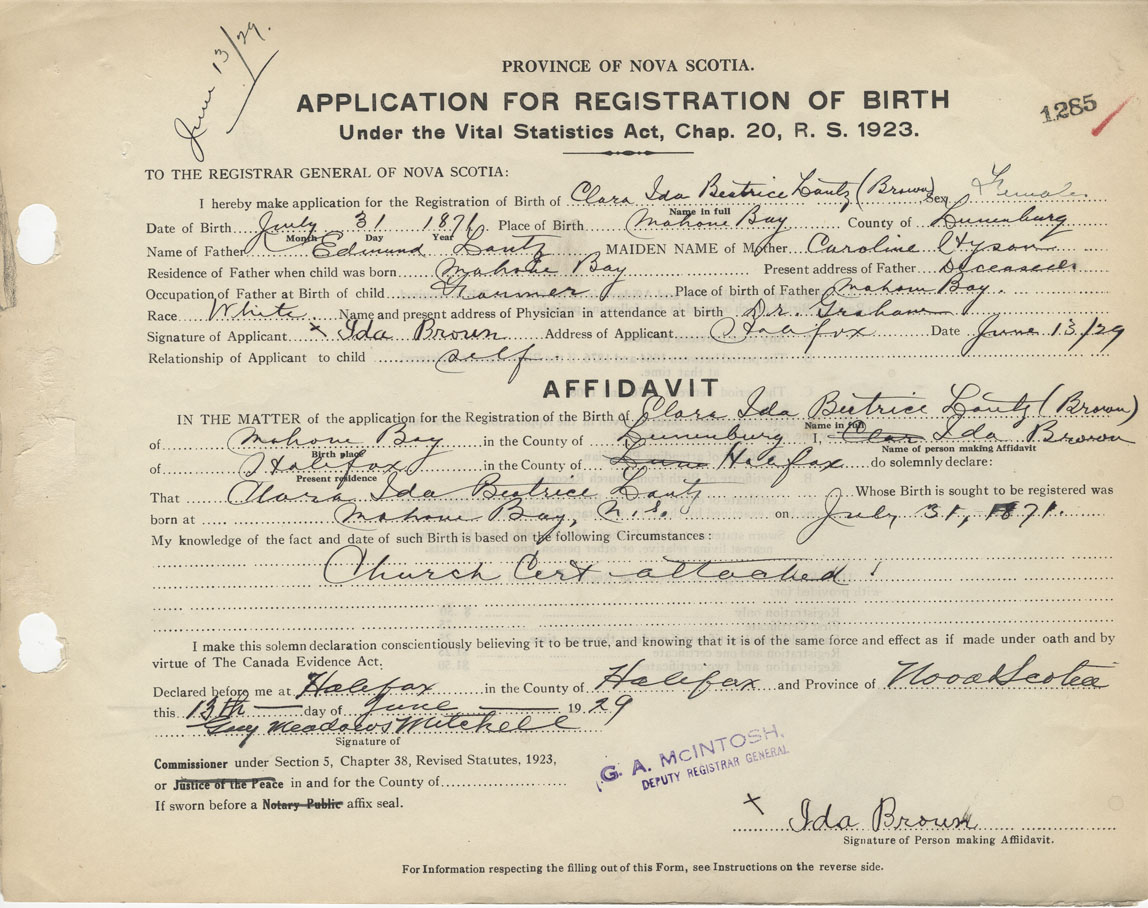 June 13/29.
PROVINCE OF NOVA SCOTIA.
APPLICATION FOR REGISTRATION OF BIRTH
1285
Under the Vital Statistics Act, Chap. 20, R. S. 1923.
TO THE REGISTRAR GENERAL OF NOVA SCOTIA:
I hereby make application for the Registration of Birth of Clara Ida Beatrice Lantz (Brown) Sex Female
Name in full
Date of Birth July 31 1871 Place of Birth Mahone Bay County of Lunenburg
Month Day Year
Name of Father Edmund Lantz MAIDEN NAME of Mother Caroline Hyson
Residence of Father when child was born Mahone Bay Present address of Father Deceased
Occupation of Father at Birth of child Farmer Place of birth of Father Mahone Bay.
Race White Name and present address of Physician in attendance at birth Dr. Graham
Signature of Applicant x Ida Brown Address of Applicant Halifax Date June 13/29
Relationship of Applicant to child self
AFFIDAVIT
IN THE MATTER of the application for the Registration of the Birth of Clara Ida Beatrice Lantz (Brown)
Name in full
of Mahone Bay in the County of Lunenburg I, Clar Ida Brown
Birth place Name of person making Affidavit
of Halifax in the County of Lune Halifax do solemnly declare:
Present residence
That Clara Ida Beatrice Lantz Whose Birth is sought to be registered was
born at Mahone Bay, N.S. on July 31, 1871.
My knowledge of the fact and date of such Birth is based on the following Circumstances:
Church Cert attached!
I make this solemn declaration conscientiously believing it to be true, and knowing that it is of the same force and effect as if made under oath and by
virtue of The Canada Evidence Act.
Declared before me at Halifax in the County of Halifax and Province of Nova Scotia
this 13th day of June 1929
Guy Meadows Mitchell
Signature of
Commissioner under Section 5, Chapter 38, Revised Statutes, 1923,
or Justice of the Peace in and for the County of
If sworn before a Notary Public affix seal.
G. A. McINTOSH.
DEPUTY REGISTRAR GENERAL
x Ida Brown
Signature of Person making Affiidavit.
For Information respecting the filling out of this Form, see Instructions on the reverse side.